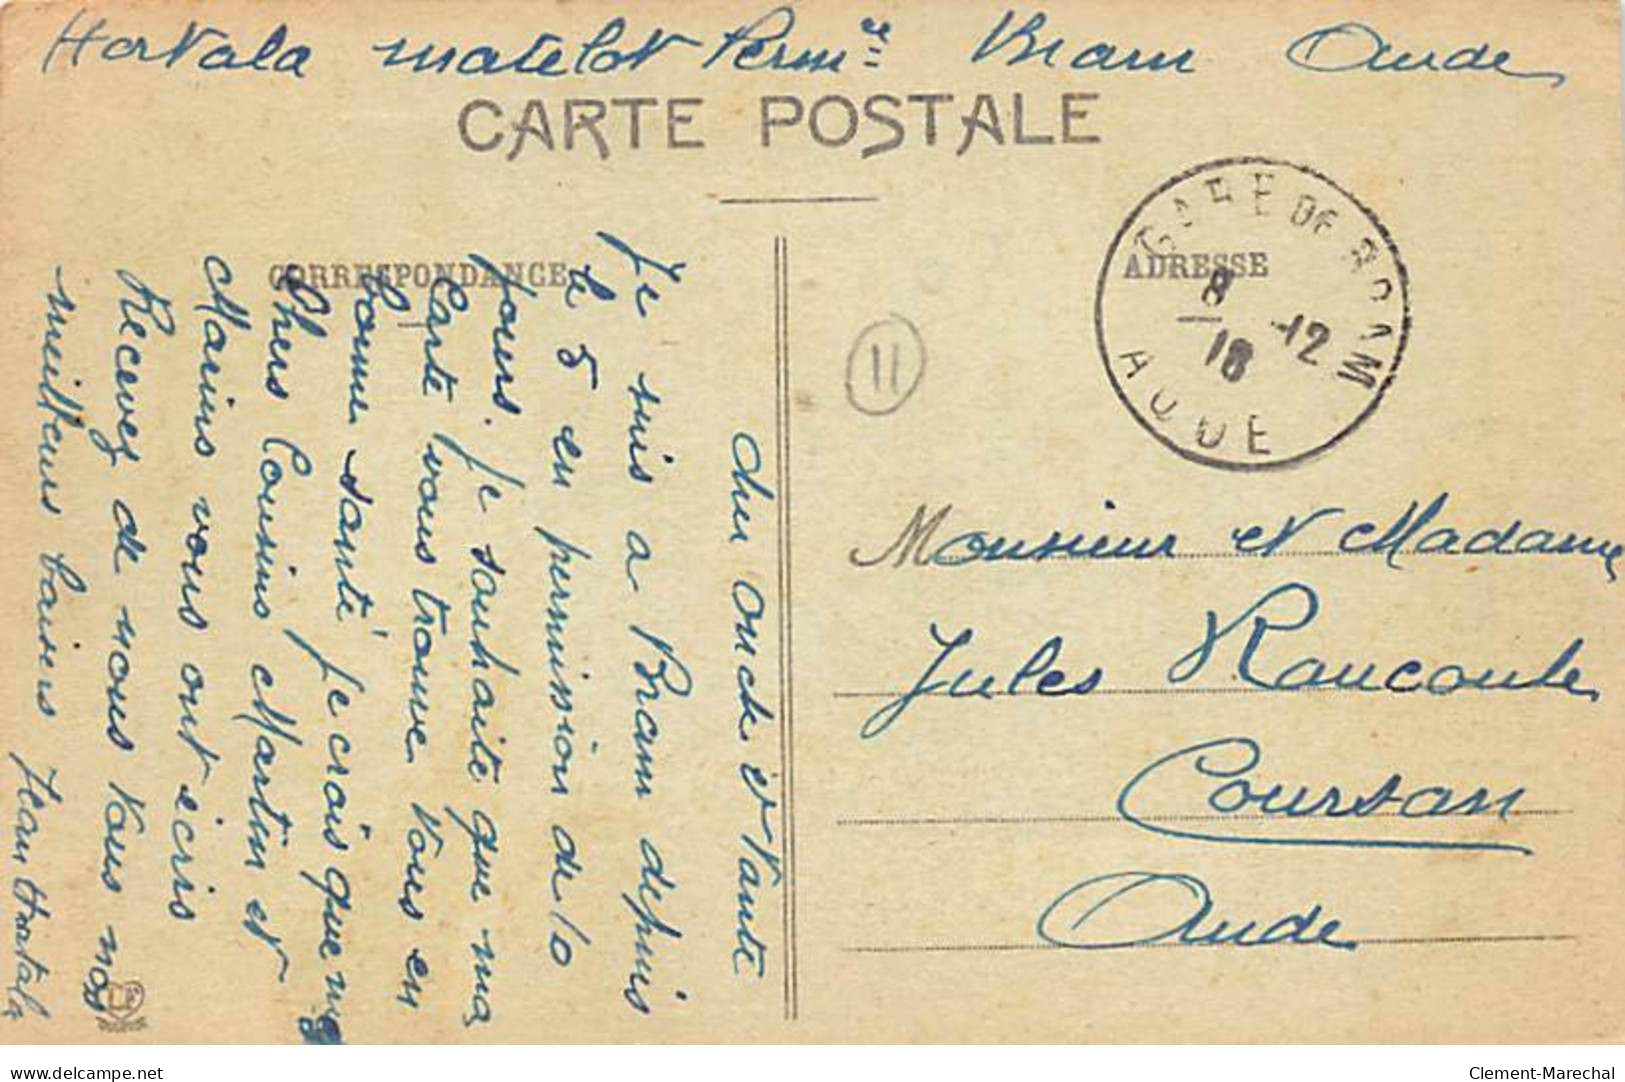 Hortala matelot Permre Bram Aude
CARTE POSTALE
CORRESPONDANCE
ADRESSE
GARE DE BRAM
8
18 -12
AUDE
11
Cher oncle et Tante
Je suis a Bram depuis
le 5 en permission de 10
jours. Je souhaite que ma
Carte vous trouve tous en
bonne santé. Je crois que mes
Chers Cousins Martin et
Marius vous ont écris
Recevez de nous tous nos
meilleurs baisers Jean Hortala
Monsieur et Madame
Jules Raucoule
Coursan
Aude
delcampe.net
Clement-Marechal